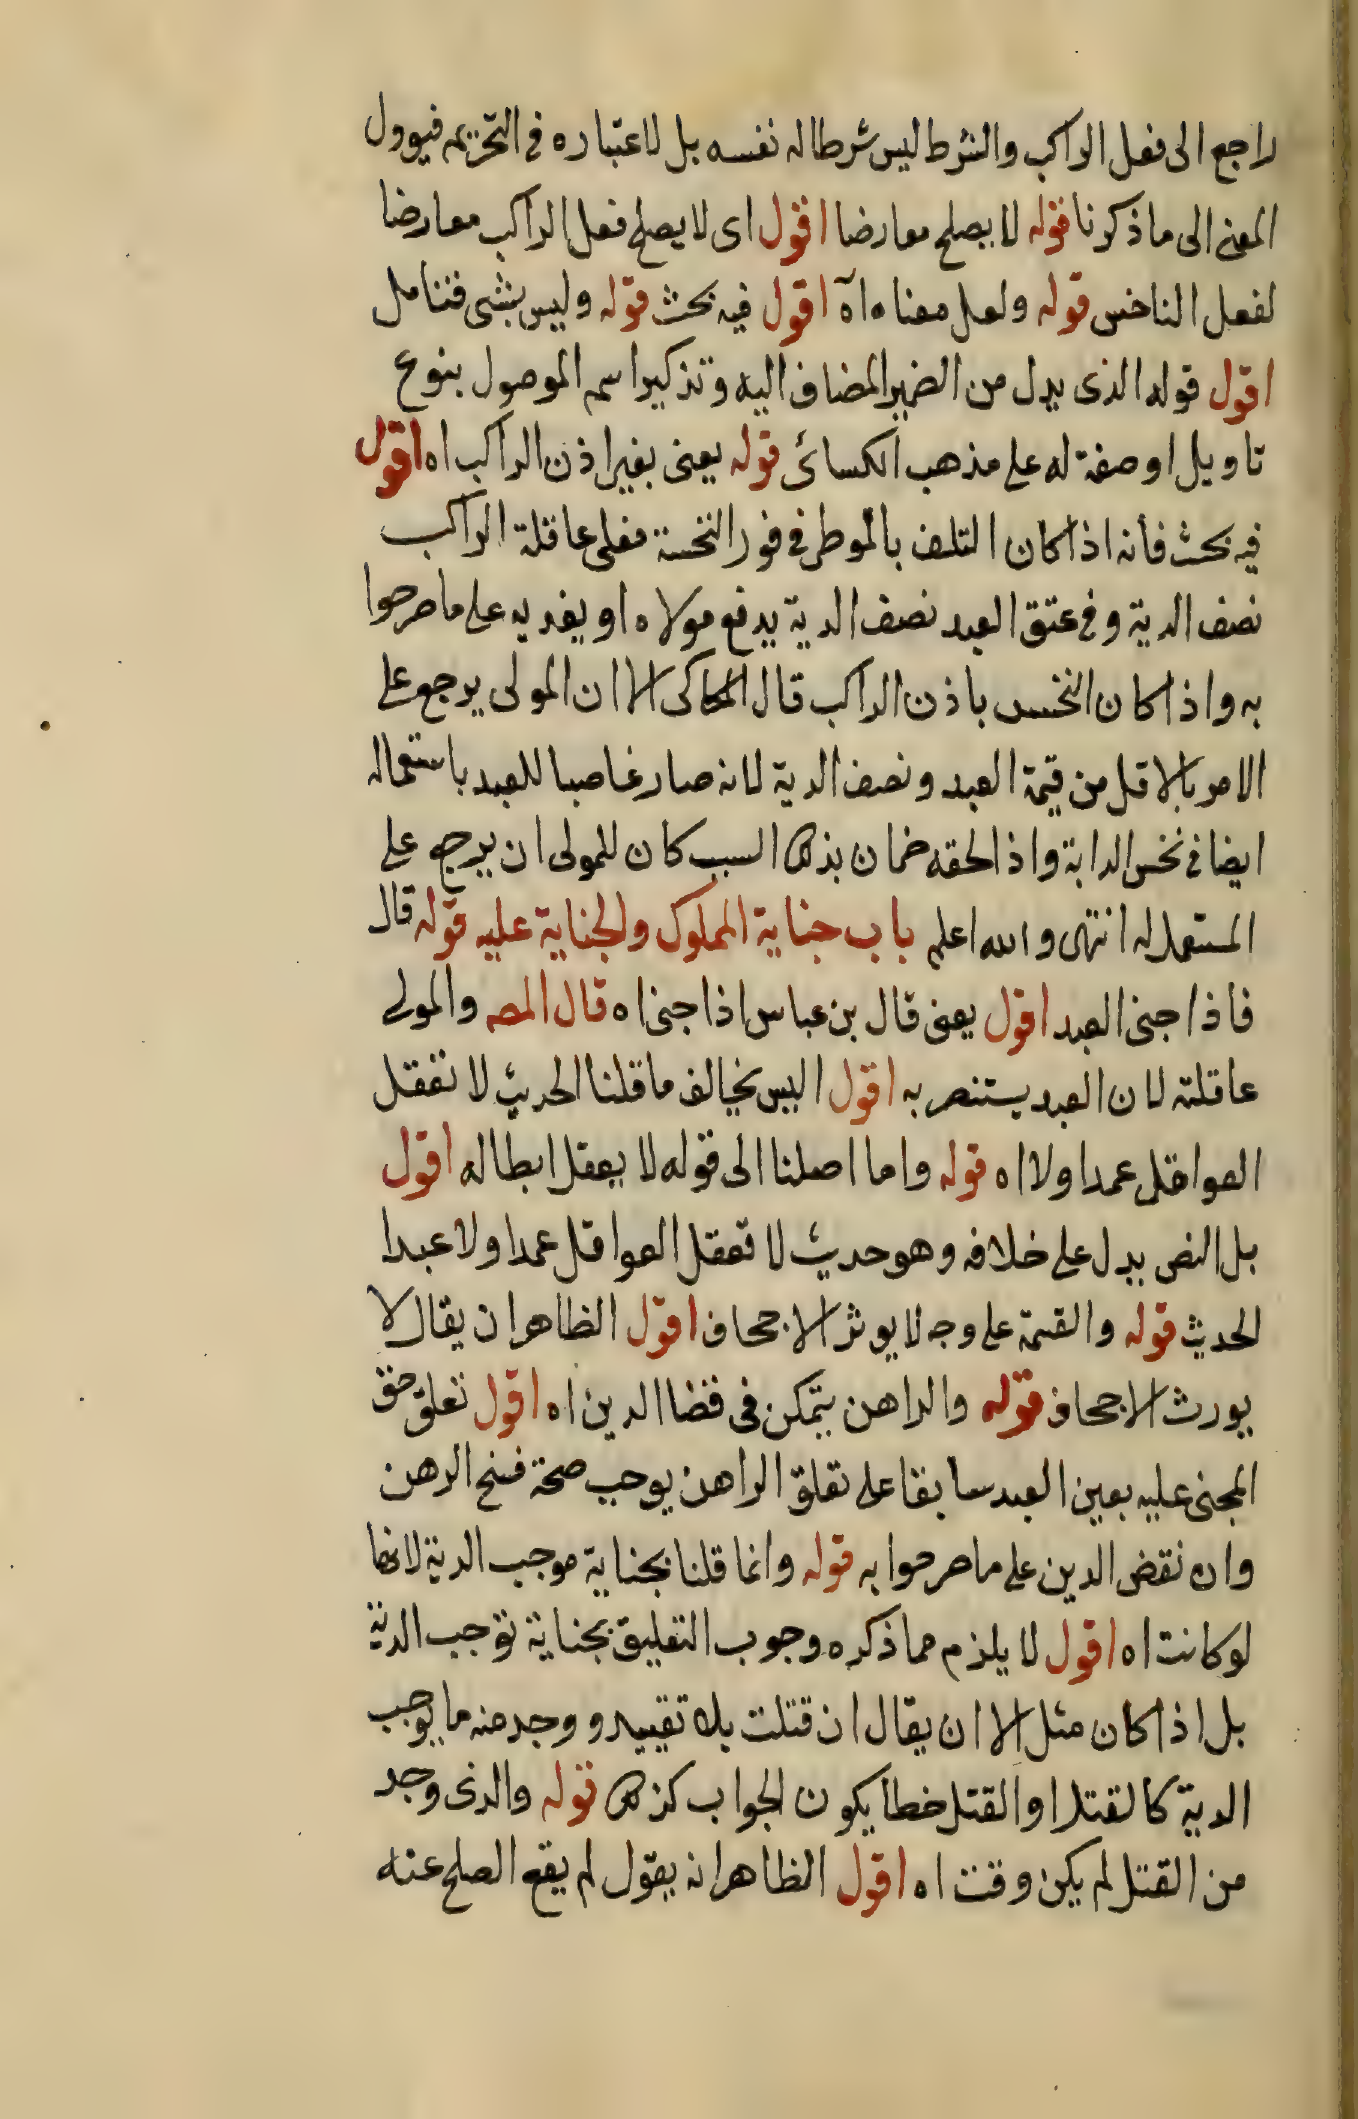 راجع الى فعل الراكب والشرط ليس شرطا له نفسه بل لاعتباره في التحريم فيوول
المعنى الى ما ذكرنا قوله لا يصلح معارضا اقول اى لا يصلح فعل الراكب معارضا
لفعل الناخس قوله ولعل معناه اه اقول فيه بحث قوله وليس بشى فتامل
اقول قوله الذى بدل من الضمير المضاف اليه وتذكير اسم الموصول بنوع
تاويل او صفة له على مذهب الكسائى قوله يعنى بغير اذن الراكب اه اقول
فيه بحث فأنه اذا كان التلف بالموطر في فور النخسة فعلى عاقلة الراكب
نصف الدية وفي عتق العبد نصف الدية يدفع مولاه او يفديه على ما صرحوا
به واذا كان النخس باذن الراكب قال الكاكى الا ان المولى يرجع على
الامر بالاقل من قيمة العبد ونصف الدية لانه صار غاصبا للعبد باستعماله
ايضا في نخس الدابة واذ الحقه ضمان بذلك السبب كان للمولى ان يرجع على
المستعمل له انتهى والله اعلم باب جناية المملوك والجناية عليه قوله قال
فاذا جنى العبد اقول يعنى قال بن عباس اذا جنى اه قال المصه والمولى
عاقلته لان العبد يستنصر به اقول اليس يخالف ما قلنا الحديث لا تعقل
العواقل عمدا ولا اه قوله واما اصلنا الى قوله لا يعقل ابطاله اقول
بل النص يدل على خلافه وهو حديث لا تعقل العواقل عمدا ولا عبدا
الحديث قوله والقسمة على وجه لا يوثر الاجحاف اقول الظاهر ان يقال لا
يورث الاجحاف قوله والراهن يتمكن فى قضا الدين اه اقول تعلق حق
المجنى عليه بعين العبد سابقا على تعلق الراهن يوجب صحة فسخ الرهن
وان نقض الدين على ما صرحوا به قوله وانما قلنا بجناية موجب الدية لانها
لو كانت اه اقول لا يلزم مما ذكره وجوب التعليق بجناية توجب الدية
بل اذا كان مثل الا ان يقال ان قتلت بلا تقييد ووجد منه ما يوجب
الدية كالقتل او القتل خطا يكون الجواب كذلك قوله والذى وجد
من القتل لم يكن وقت اه اقول الظاهر انه يقول لم يقع الصلح عنه